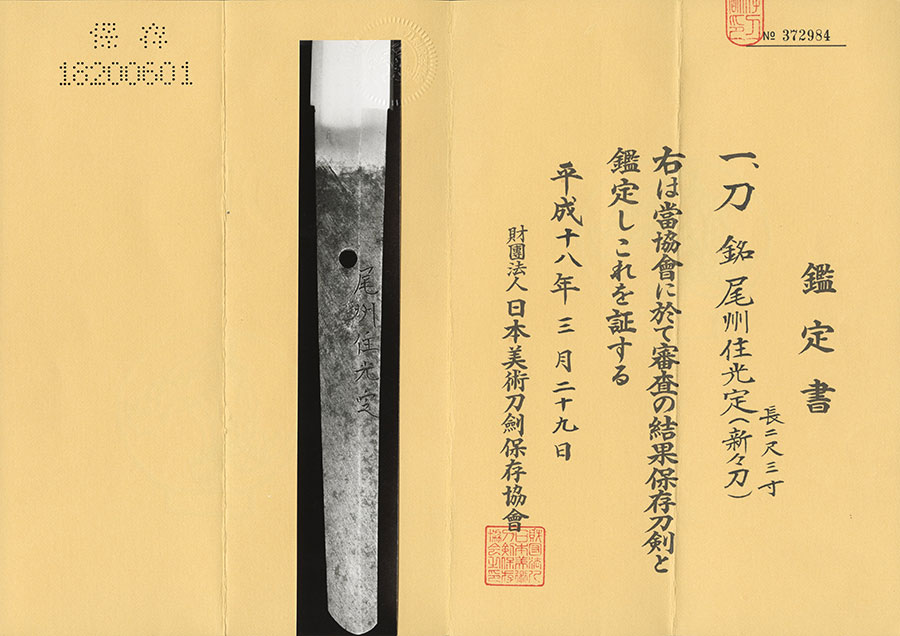 № 372984
鑑定書
一、刀 銘 尾州住光定(新々刀)
長二尺三寸
右は當協會に於て審査の結果保存刀剣と
鑑定しこれを証する
平成十八年三月二十九日
財團法人日本美術刀劍保存協會
尾州住光定
保存
18200601